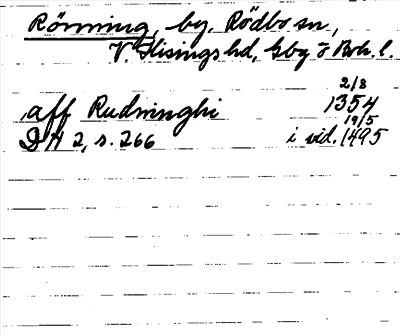 Rönning, by, Rödbo sn,
V. Hisings hd, Gbg o Boh. l.
2/8
aff Rudninghi 1354
19/5
DH 2, s. 266 i vid. 1495